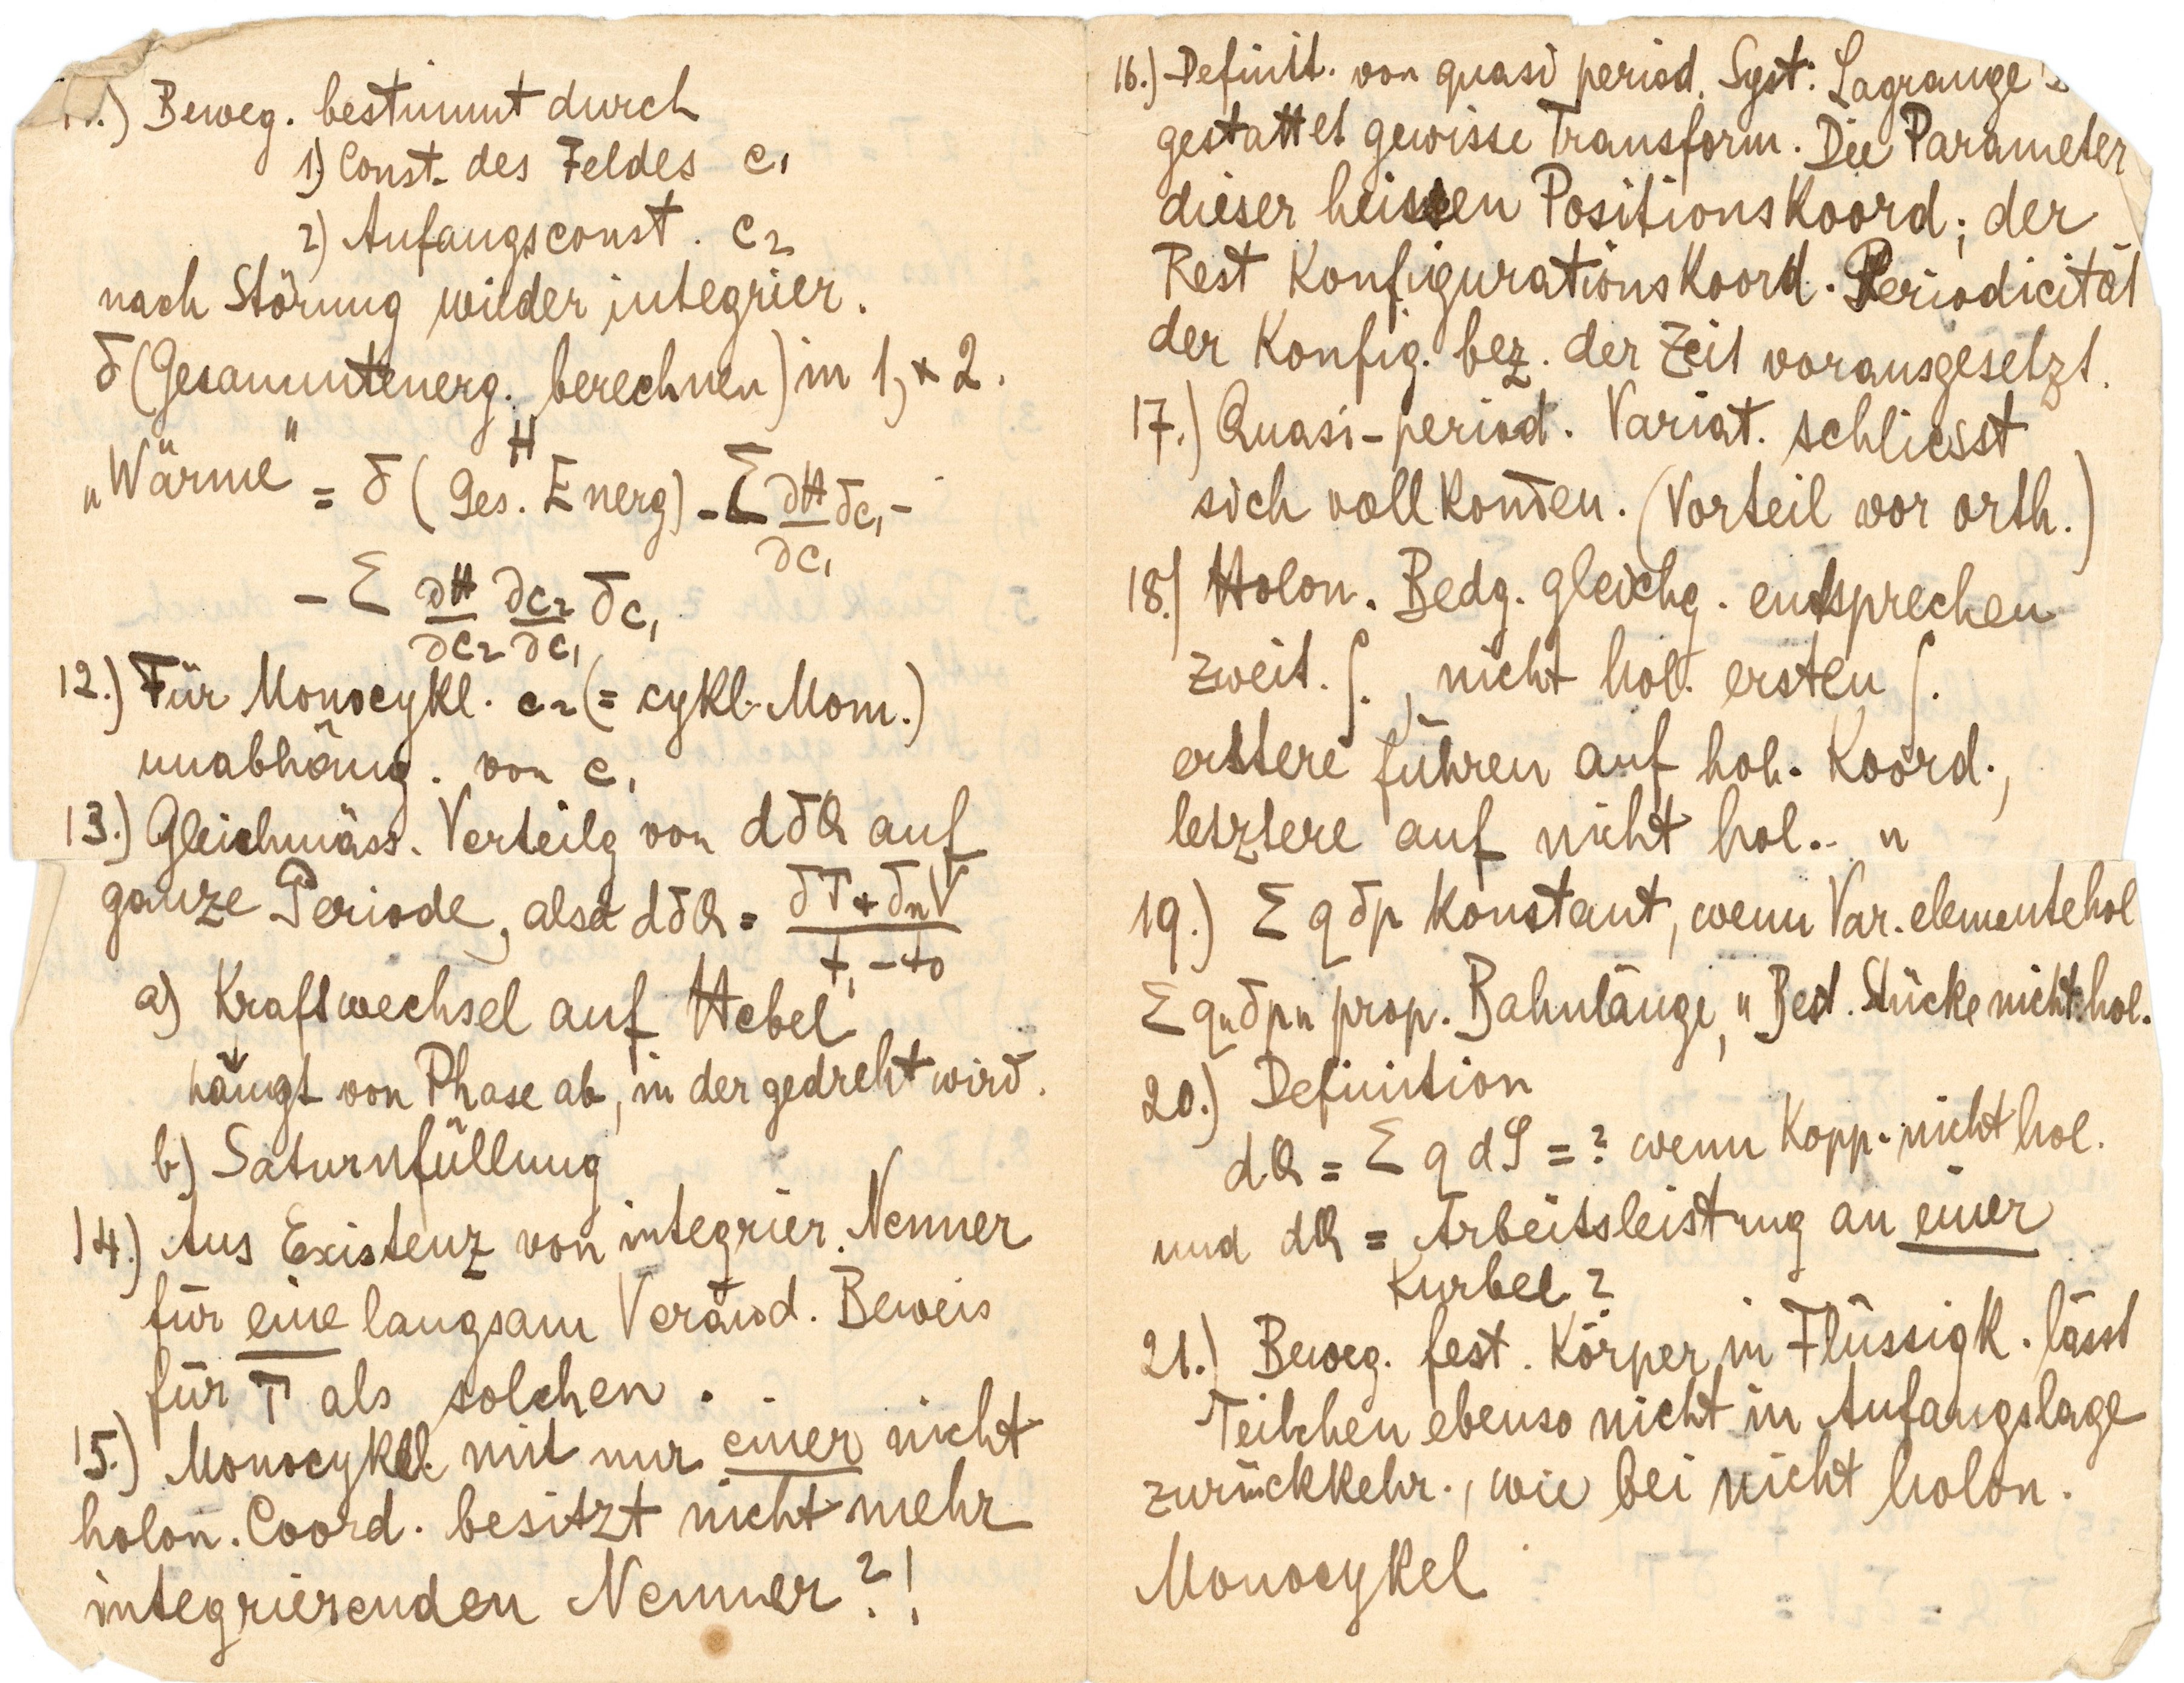 1.) Beweg. bestimmt durch
1.) Const. des Feldes c₁
2) Anfangsconst. c₂
nach Störung wieder integrier.
δ(Gesammtenerg. berechnen) in 1, + 2.
H
„Wärme" = δ(Ges. Energ) - Σ ∂H/∂c₁ δc₁ -
- Σ ∂H/∂c₂ ∂c₂/∂c₁ δc₁
12.) Für Monocykl. c₂ (= cykl. Mom.)
unabhäng. von c₁
13.) Gleichmäss. Verteilg von dδQ auf
ganze Periode, also dδQ = (δT + δₙV)/(t₁ - t₀)
a) Kraftwechsel auf Hebel
hängt von Phase ab, in der gedreht wird.
b) Saturnfüllung
14.) Aus Existenz von integrier. Nenner
für eine langsam Veränd. Beweis
für T als solchen.
15.) Monocykel mit nur einer nicht
holon. Coord. besitzt nicht mehr
integrierenden Nenner?!
16.) Definit. von quasi period. Syst: Lagrange
gestattet gewisse Transform. Die Parameter
dieser heissen PositionsKoord; der
Rest KonfigurationsKoord. Periodicität
der Konfig. bez. der Zeit vorausgesetzt.
17.) Quasi-period. Variat. schliesst
sich voll Konden. (Vorteil vor orth.)
18.) Holon. Bedg. gleichg. entsprechen
zweit. ∫., nicht hol. ersten ∫.
erstere führen auf hol. Koord.,
letztere auf nicht hol.. "
19.) Σ q δp Konstant, wenn Var. elemente hol
Σ qₙδpₙ prop. Bahnlänge, " Best. Stücke nicht hol.
20.) Definition
dQ = Σ q dS = ? wenn Kopp. nicht hol.
und dQ = Arbeitsleistung an einer
Kurbel?
21.) Beweg. fest. Körper in Flüssigk. lässt
Teilchen ebenso nicht in Anfangslage
zurückkehr., wie bei nicht holon.
Monocykel